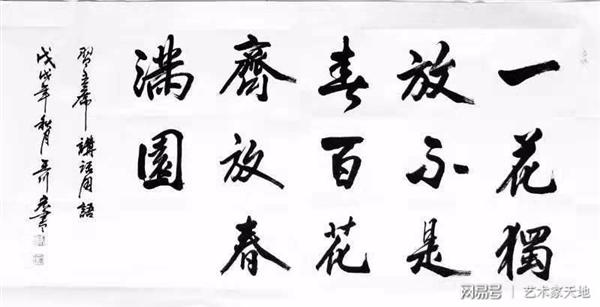 一花獨
放不是
春百花
齊放春
滿園
習主席講話用語
戊戌年秋月
网易号 | 艺术家天地